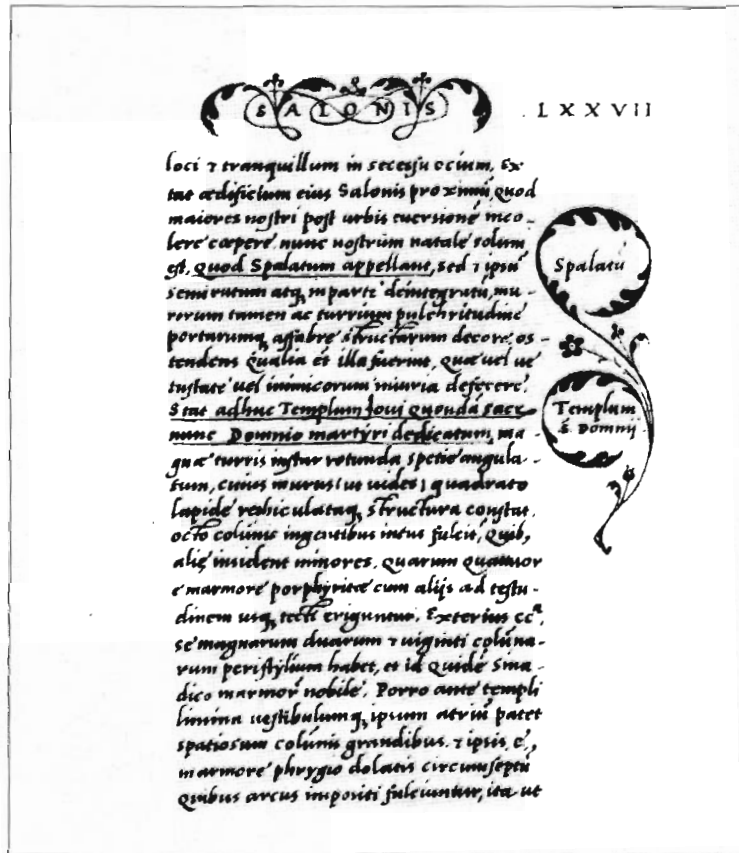 SALONIS
LXXVII
loci ⁊ tranquillum in secessu ocium. Ex
tat ædificium eius Salonis proximũ, quod
maiores nostri post urbis euersionẽ inco-
lere cœpere, nunc uostrum natale solum
est, quod Spalatum appellant, sed ⁊ ipsũ
semirutum atq, in parte deintegratũ, mu-
rorum tamen ac turrium pulchritudine
portarumq, affabre structarum decore, os
tendens qualia et illa fuerint, quæ uel ue
tustate uel inimicorum iniuria defecere.
Stat adhuc Templum Ioui quondã sacr
nunc Domnio martyri dedicatum, ma
gnæ turris instar rotunda spetie angula-
tum, cuius murus (ut uides) quadrato
lapide rethiculataq, structura constat.
octo colũnis ingentibus intus fulcit, quib,
alię insident minores. Quarum quattuor
e marmore porphyritæ cum alijs ad testu-
dinem usq, tecti eriguntur. Exterius
se magnarum duarum ⁊ uiginti colũna-
rum peristylium habet, et id quidẽ Sma-
dico marmore nobile. Porro ante templi
limina uestibulumq, ipsum atriũ patet
spatiosum colũnis grandibus, ⁊ ipsis e,
marmore phrygio dolatis circumseptũ
Quibus arcus impositi fulciuntur, ita ut
Spalatũ
Templum
S. Domnij